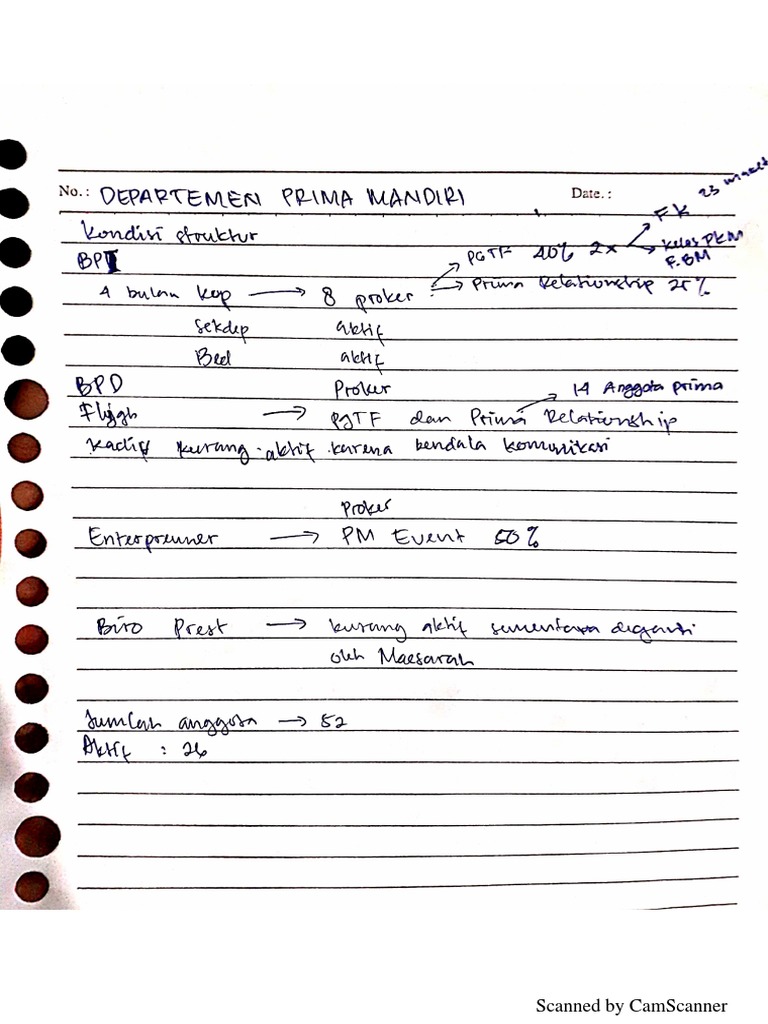 No.: DEPARTEMEN PRIMA MANDIRI Date.:
FK 23 maret
Kondisi struktur
PGTF 40% 2x Kelas PKM
F.BM
BPI
4 bulan kep → 8 proker → Prima Relationship 25%
Sekdep aktif
Bed aktif
BPD Proker 14 Anggota prima
→ PGTF dan Prima Relationship
Kadif kurang aktif karena kendala komunikasi
Proker
Enterpreuner → PM Event 50%
Biro Prest → kurang aktif sementara diganti
oleh Maesarah
Jumlah anggota → 52
Aktif : 26
Scanned by CamScanner